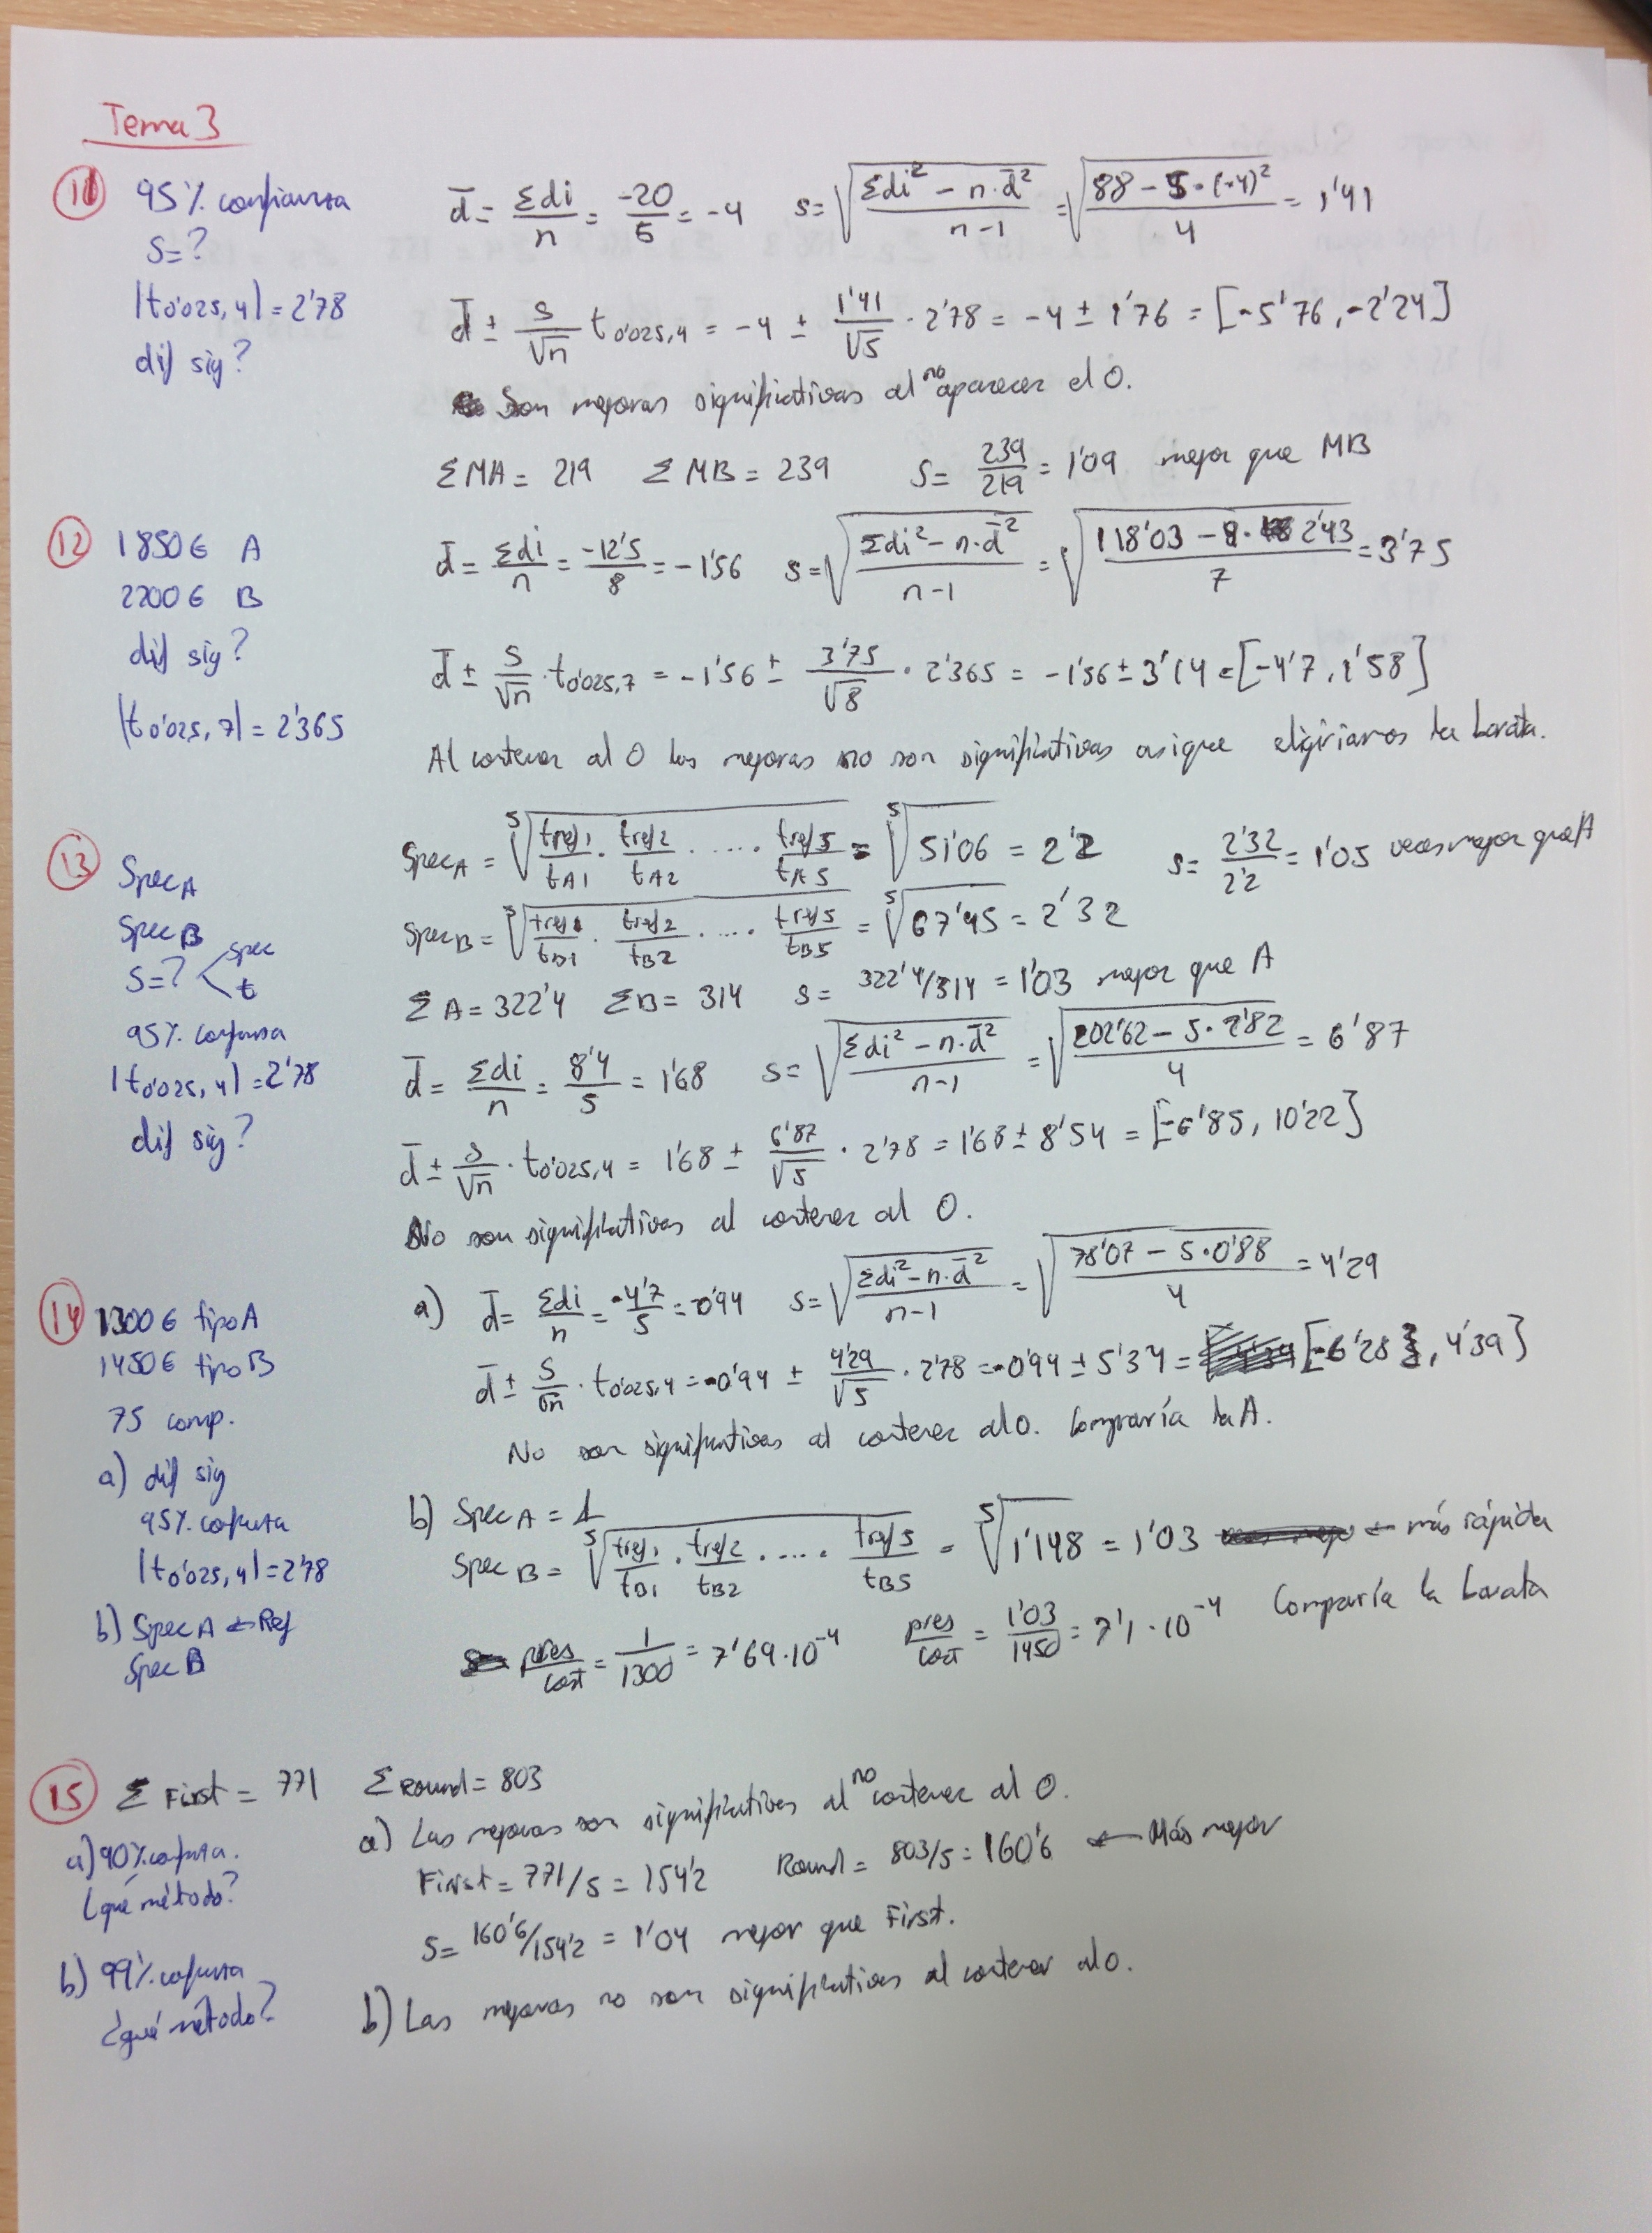 Tema 3
11 95% confianza
S=?
|t0'025,4| = 2'78
dif sig?
d̄ = Σdi/n = -20/5 = -4 s = √((Σdi² - n·d̄²)/(n-1)) = √((88 - 5·(-4)²)/4) = 1'41
d̄ ± s/√n t0'025,4 = -4 ± 1'41/√5 · 2'78 = -4 ± 1'76 = [-5'76, -2'24]
Son mejoras significativas al no aparecer el 0.
ΣMA = 219 ΣMB = 239 S = 239/219 = 1'09 mejor que MB
12 1850€ A
2200€ B
dif sig?
|t0'025,7| = 2'365
d̄ = Σdi/n = -12'5/8 = -1'56 s = √((Σdi² - n·d̄²)/(n-1)) = √((118'03 - 8·2'43)/7) = 3'75
d̄ ± s/√n · t0'025,7 = -1'56 ± 3'75/√8 · 2'365 = -1'56 ± 3'14 = [-4'7, 1'58]
Al contener al 0 las mejoras no son significativas asique eligiriamos la barata.
13 SpecA
SpecB
S=? < spec
t
95% confianza
|t0'025,4| = 2'78
dif sig?
SpecA = ⁵√(tref1/tA1 · tref2/tA2 · ..... · tref5/tA5) = ⁵√51'06 = 2'2 s = 2'32/2'2 = 1'05 veces mejor que A
SpecB = ⁵√(tref1/tB1 · tref2/tB2 · .... · tref5/tB5) = ⁵√67'45 = 2'32
ΣA = 322'4 ΣB = 314 s = 322'4/314 = 1'03 mejor que A
d̄ = Σdi/n = 8'4/5 = 1'68 s = √((Σdi² - n·d̄²)/(n-1)) = √((202'62 - 5·2'82)/4) = 6'87
d̄ ± s/√n · t0'025,4 = 1'68 ± 6'87/√5 · 2'78 = 1'68 ± 8'54 = [-6'85, 10'22]
No son significativas al contener al 0.
14 1300€ tipo A
1450€ tipo B
75 comp.
a) dif sig
95% confianza
|t0'025,4| = 2'78
b) SpecA ← Ref
SpecB
a) d̄ = Σdi/n = -4'7/5 = -0'94 s = √((Σdi² - n·d̄²)/(n-1)) = √((78'07 - 5·0'88)/4) = 4'29
d̄ ± s/√n · t0'025,4 = -0'94 ± 4'29/√5 · 2'78 = -0'94 ± 5'34 = [-6'28, 4'39]
No son significativas al contener al 0. Compraría la A.
b) SpecA = 1
SpecB = ⁵√(tref1/tB1 · tref2/tB2 · .... · tref5/tB5) = ⁵√1'148 = 1'03 ← más rápida
pres/cost = 1/1300 = 7'69·10⁻⁴ pres/cost = 1'03/1450 = 7'1·10⁻⁴ Compraría la barata
15 ΣFirst = 771 ΣRound = 803
a) 90% confianza.
¿qué método?
b) 99% confianza
¿qué método?
a) Las mejoras son significativas al no contener al 0.
First = 771/5 = 154'2 Round = 803/5 = 160'6 ← Más mejor
S = 160'6/154'2 = 1'04 mejor que First.
b) Las mejoras no son significativas al contener al 0.